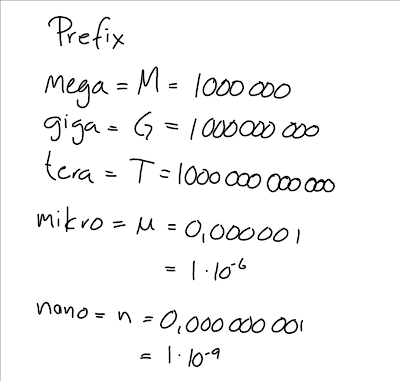 Prefix
mega = M = 1000 000
giga = G = 1000000 000
tera = T = 1000 000 000 000
mikro = μ = 0,000001
= 1·10⁻⁶
nano = n = 0,000 000 001
= 1·10⁻⁹